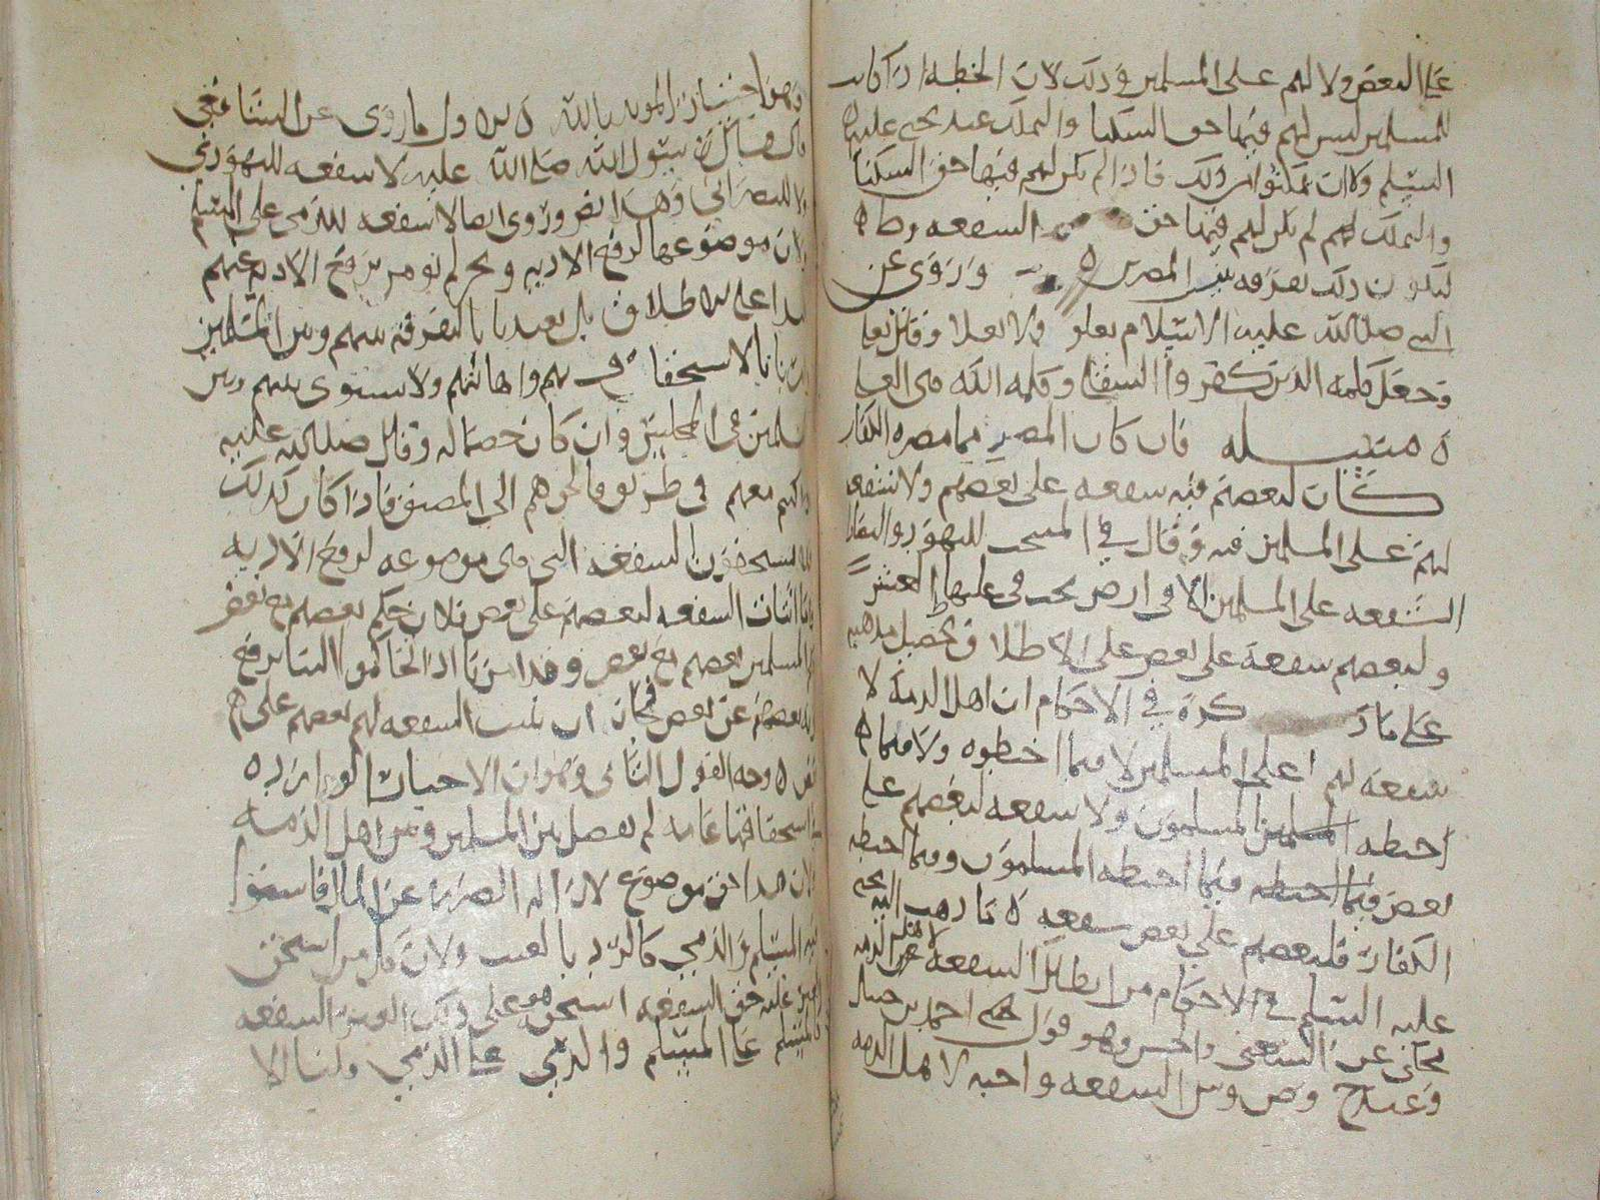 على البعض ولا لهم على المسلمين وذلك لان الخطه اذا كانت
للمسلمين ليس لهم فيها حق السكنا والهلك عند يحيى عليه
السلم ولا ان يمكنوا من ذلك فاذا لم يكن لهم فيها حق السكنا
والهلك لهم لم يكن لهم فيها حق السفعه وط ه
ليكون ذلك تفرقه بين المصرين ه وروى عن
النبي صلى الله عليه الاسلام يعلو ولا يعلا وقال تعا
وجعل كلمة الذين كفروا السفلى وكلمه الله هي العليا
ه مسله فان كان المصر مما مصره الكفار
كان لبعضهم فيه سفعه على بعضهم ولا شفعه
لهم على المسلمين فيه وقال في المنتخب لليهود والنصارا
الشفعه على المسلمين الا في ارض يجب في عليها العشر
ولبعضهم سفعة على بعض على الاطلاق تحصيل مذهبه
على ما ذكره في الاحكام ان اهل الذمة لا
سفعة لهم على المسلمين لا فيما اختطوه ولا فيما ه
اختطه المسلمين المسلمون ولا سفعه لبعضهم على
بعض فيما اختطه فيما اختطه المسلمون وفيما اختطه
الكفار فلبعضهم على بعض سفعه ه ما ذهب اليه يحيى
عليه السلم في الاحكام من ابطال السفعه لاهل الذمه
يحكى عن الشعبي والحسن وهو قول احمد بن حنبل
وعند ح وص وش السفعه واجبه لاهل الذمه
وهو اختيار المويد بالله ه وجه الاول ما روى عن الشافعي
قال قال رسول الله صلى الله عليه لا سفعه لليهودي
ولا للنصراني وهذا نص وروى ايضا لا شفعه للذمي على المسلم
ولان موضوعها لرفع الاذيه ونحن لم نومر برفع الاذيه عنهم
هذا على الاطلاق بل تعبدنا بالتفرقه بينهم وبين المسلمين
بالاستخفاف بهم واهانتهم ولا نستوى بينهم وبين
المسلمين في المجلس وان كان خصما له وقال صلى الله عليه
في طريق فالجوهم الى المضيق فاذا كان كذلك
لا يستحقون السفعه التي هي موضوعه لرفع الاذيه
واما اثبات السفعه لبعضهم على بعض فلان حكم بعضهم مع بعض
المسلمين بعضهم مع بعض وقد امرنا اذا تحاكموا الينا برفع
بعضهم عن بعض فجاز ان نثبت السفعه لهم بعضهم على ه
بعض ه وجه القول الثاني وهو ان الاخبار الوارده
استحقاقها عامه لم تفصل بين المسلمين وبين اهل الذمه
ولان هذا حق موضوع لازاله الضرر عن المال فاستوا
فيه المسلم والذمي كالرد بالعيب ولان كل من استحق
عليه حق السفعه استحق هو على ذلك الغير السفعه
كالمسلم على المسلم والذمي على الذمي ولنا الا